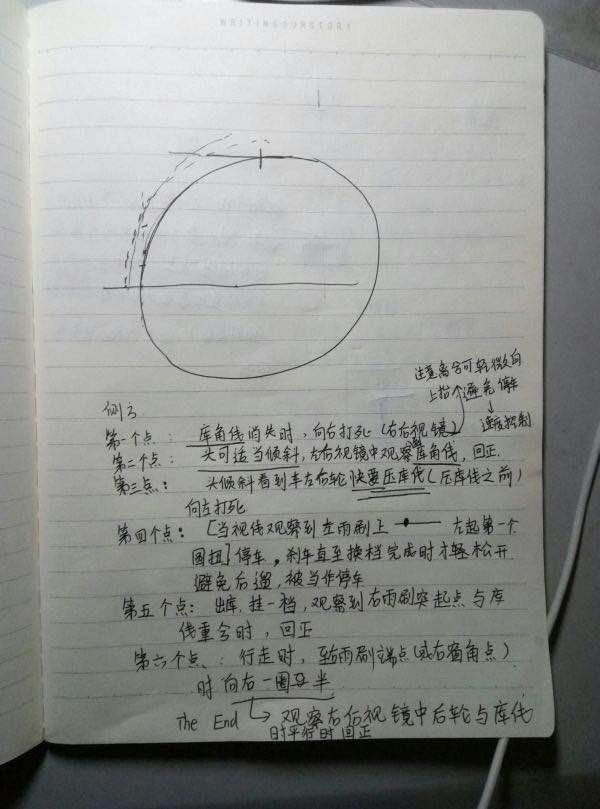 WRITINGOURSTORY
注意离合可轻微向
上抬，避免停车
↓
速度控制
侧方
第一个点：库角线消失时，向右打死（右后视镜）
第二个点：头可适当倾斜，左后视镜中观察库角线，回正.
第三点：头倾斜看到车左右轮快要压库线（压库线之前）
向左打死
第四个点：[当视线观察到左雨刷上 左起第一个
圆扭]停车，刹车直至换档完成时才轻松开
避免后遛，被当作停车
第五个点：出库，挂一档，观察到右雨刷突起点与库
线重合时，回正
第六个点：行走时，至右雨刷端点（或右窗角点）
时向右一圈又半
The End ↳ 观察右后视镜中后轮与库线
时平行时回正